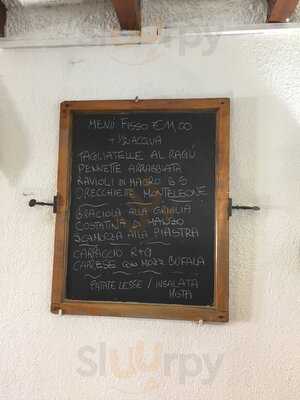 Sluurpy
MENÙ FISSO €11,00
+ ½ ACQUA
TAGLIATELLE AL RAGÚ
PENNETTE ARRABBIATA
RAVIOLI DI MAGRO B S
ORECCHIETTE MONTELEONE
BRACIOLA ALLA GRIGLIA
COSTATINA DI MANZO
SCAMORZA ALLA PIASTRA
CARPACCIO R+G
CAPRESE CON MOZZ BUFALA
PATATE LESSE / INSALATA
MISTA
Sluurpy